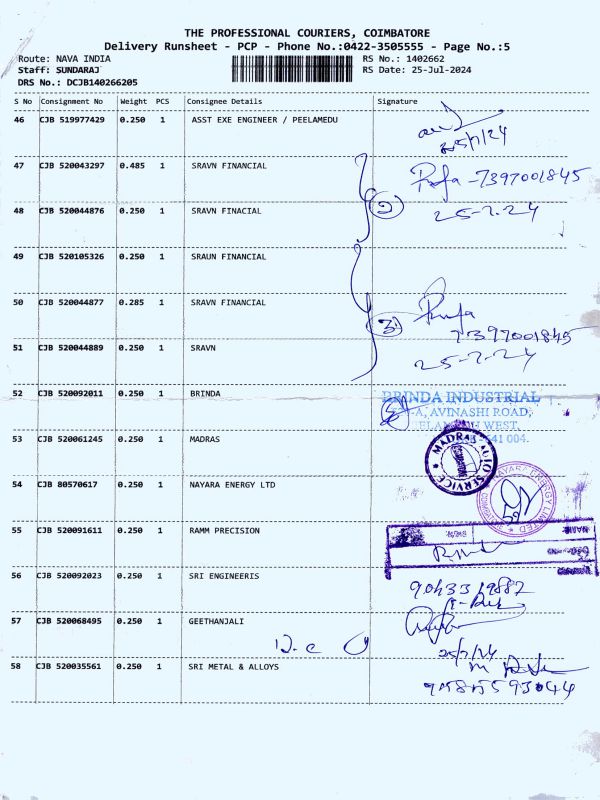 THE PROFESSIONAL COURIERS, COIMBATORE
Delivery Runsheet - PCP - Phone No.:0422-3505555 - Page No.:5
Route: NAVA INDIA RS No.: 1402662
Staff: SUNDARAJ RS Date: 25-Jul-2024
DRS No.: DCJB140266205
S No Consignment No Weight PCS Consignee Details Signature
46 CJB 519977429 0.250 1 ASST EXE ENGINEER / PEELAMEDU
25/7/24
47 CJB 520043297 0.485 1 SRAVN FINANCIAL 7397001845
48 CJB 520044876 0.250 1 SRAVN FINACIAL 2 25-7-24
49 CJB 520105326 0.250 1 SRAUN FINANCIAL
50 CJB 520044877 0.285 1 SRAVN FINANCIAL 3
7397001845
51 CJB 520044889 0.250 1 SRAVN 25-7-24
52 CJB 520092011 0.250 1 BRINDA BRINDA INDUSTRIAL
-A, AVINASHI ROAD,
WEST,
53 CJB 520061245 0.250 1 MADRAS 641 004.
MADRAS AUTO SERVICE
54 CJB 80570617 0.250 1 NAYARA ENERGY LTD
NAYARA ENERGY LIMITED
55 CJB 520091611 0.250 1 RAMM PRECISION
NAME
56 CJB 520092023 0.250 1 SRI ENGINEERIS
57 CJB 520068495 0.250 1 GEETHANJALI
D.C
25/7/24
58 CJB 520035561 0.250 1 SRI METAL & ALLOYS